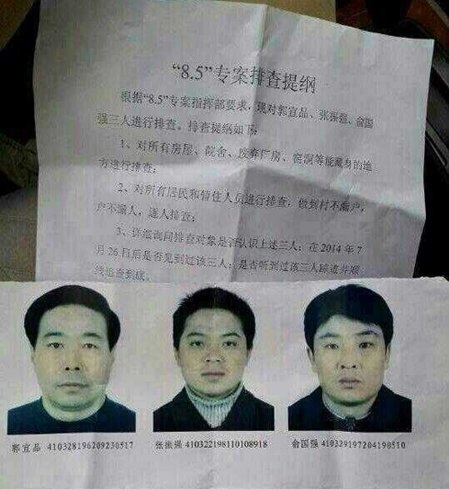 “8.5”专案排查提纲
根据“8.5”专案指挥部要求，现对郭宜品、张振强、俞国
强三人进行排查。排查提纲如下：
1、对所有房屋、院舍、废弃厂房、窑洞等能藏身的地
方进行排查；
2、对所有居民和暂住人员进行排查，做到村不漏户，
户不漏人，逐人排查；
3、详细询问排查对象是否认识上述三人；在 2014 年 7
月 26 日后是否见到过该三人；是否听到过该三人踪迹并顺
线追查到底。
郭宜品 410328196209230517
张振强 410322198110108918
俞国强 410329197204190510